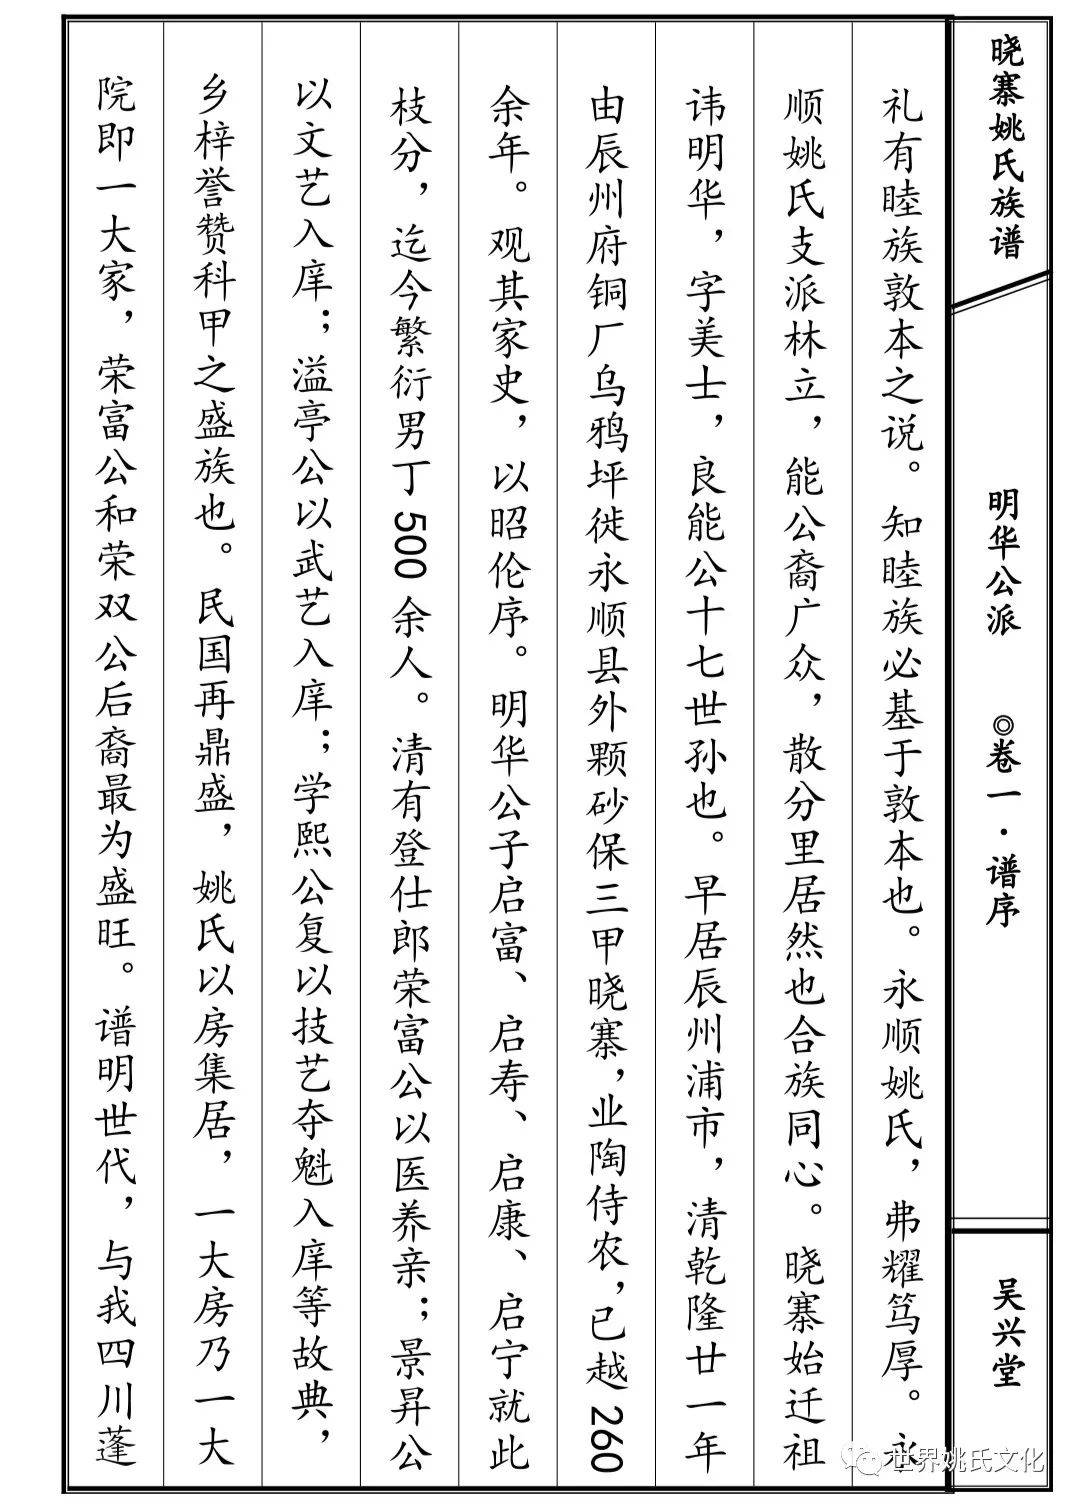 晓寨姚氏族谱
明华公派 ◎卷一·谱序
吴兴堂
礼有睦族敦本之说。知睦族必基于敦本也。永顺姚氏，弗耀笃厚。永
顺姚氏支派林立，能公裔广众，散分里居然也合族同心。晓寨始迁祖
讳明华，字美士，良能公十七世孙也。早居辰州浦市，清乾隆廿一年
由辰州府铜厂乌鸦坪徙永顺县外颗砂保三甲晓寨，业陶侍农，已越260
余年。观其家史，以昭伦序。明华公子启富、启寿、启康、启宁就此
枝分，迄今繁衍男丁500余人。清有登仕郎荣富公以医养亲；景昇公
以文艺入庠；溢亭公以武艺入庠；学熙公复以技艺夺魁入庠等故典，
乡梓誉赞科甲之盛族也。民国再鼎盛，姚氏以房集居，一大房乃一大
院即一大家，荣富公和荣双公后裔最为盛旺。谱明世代，与我四川蓬
世界姚氏文化